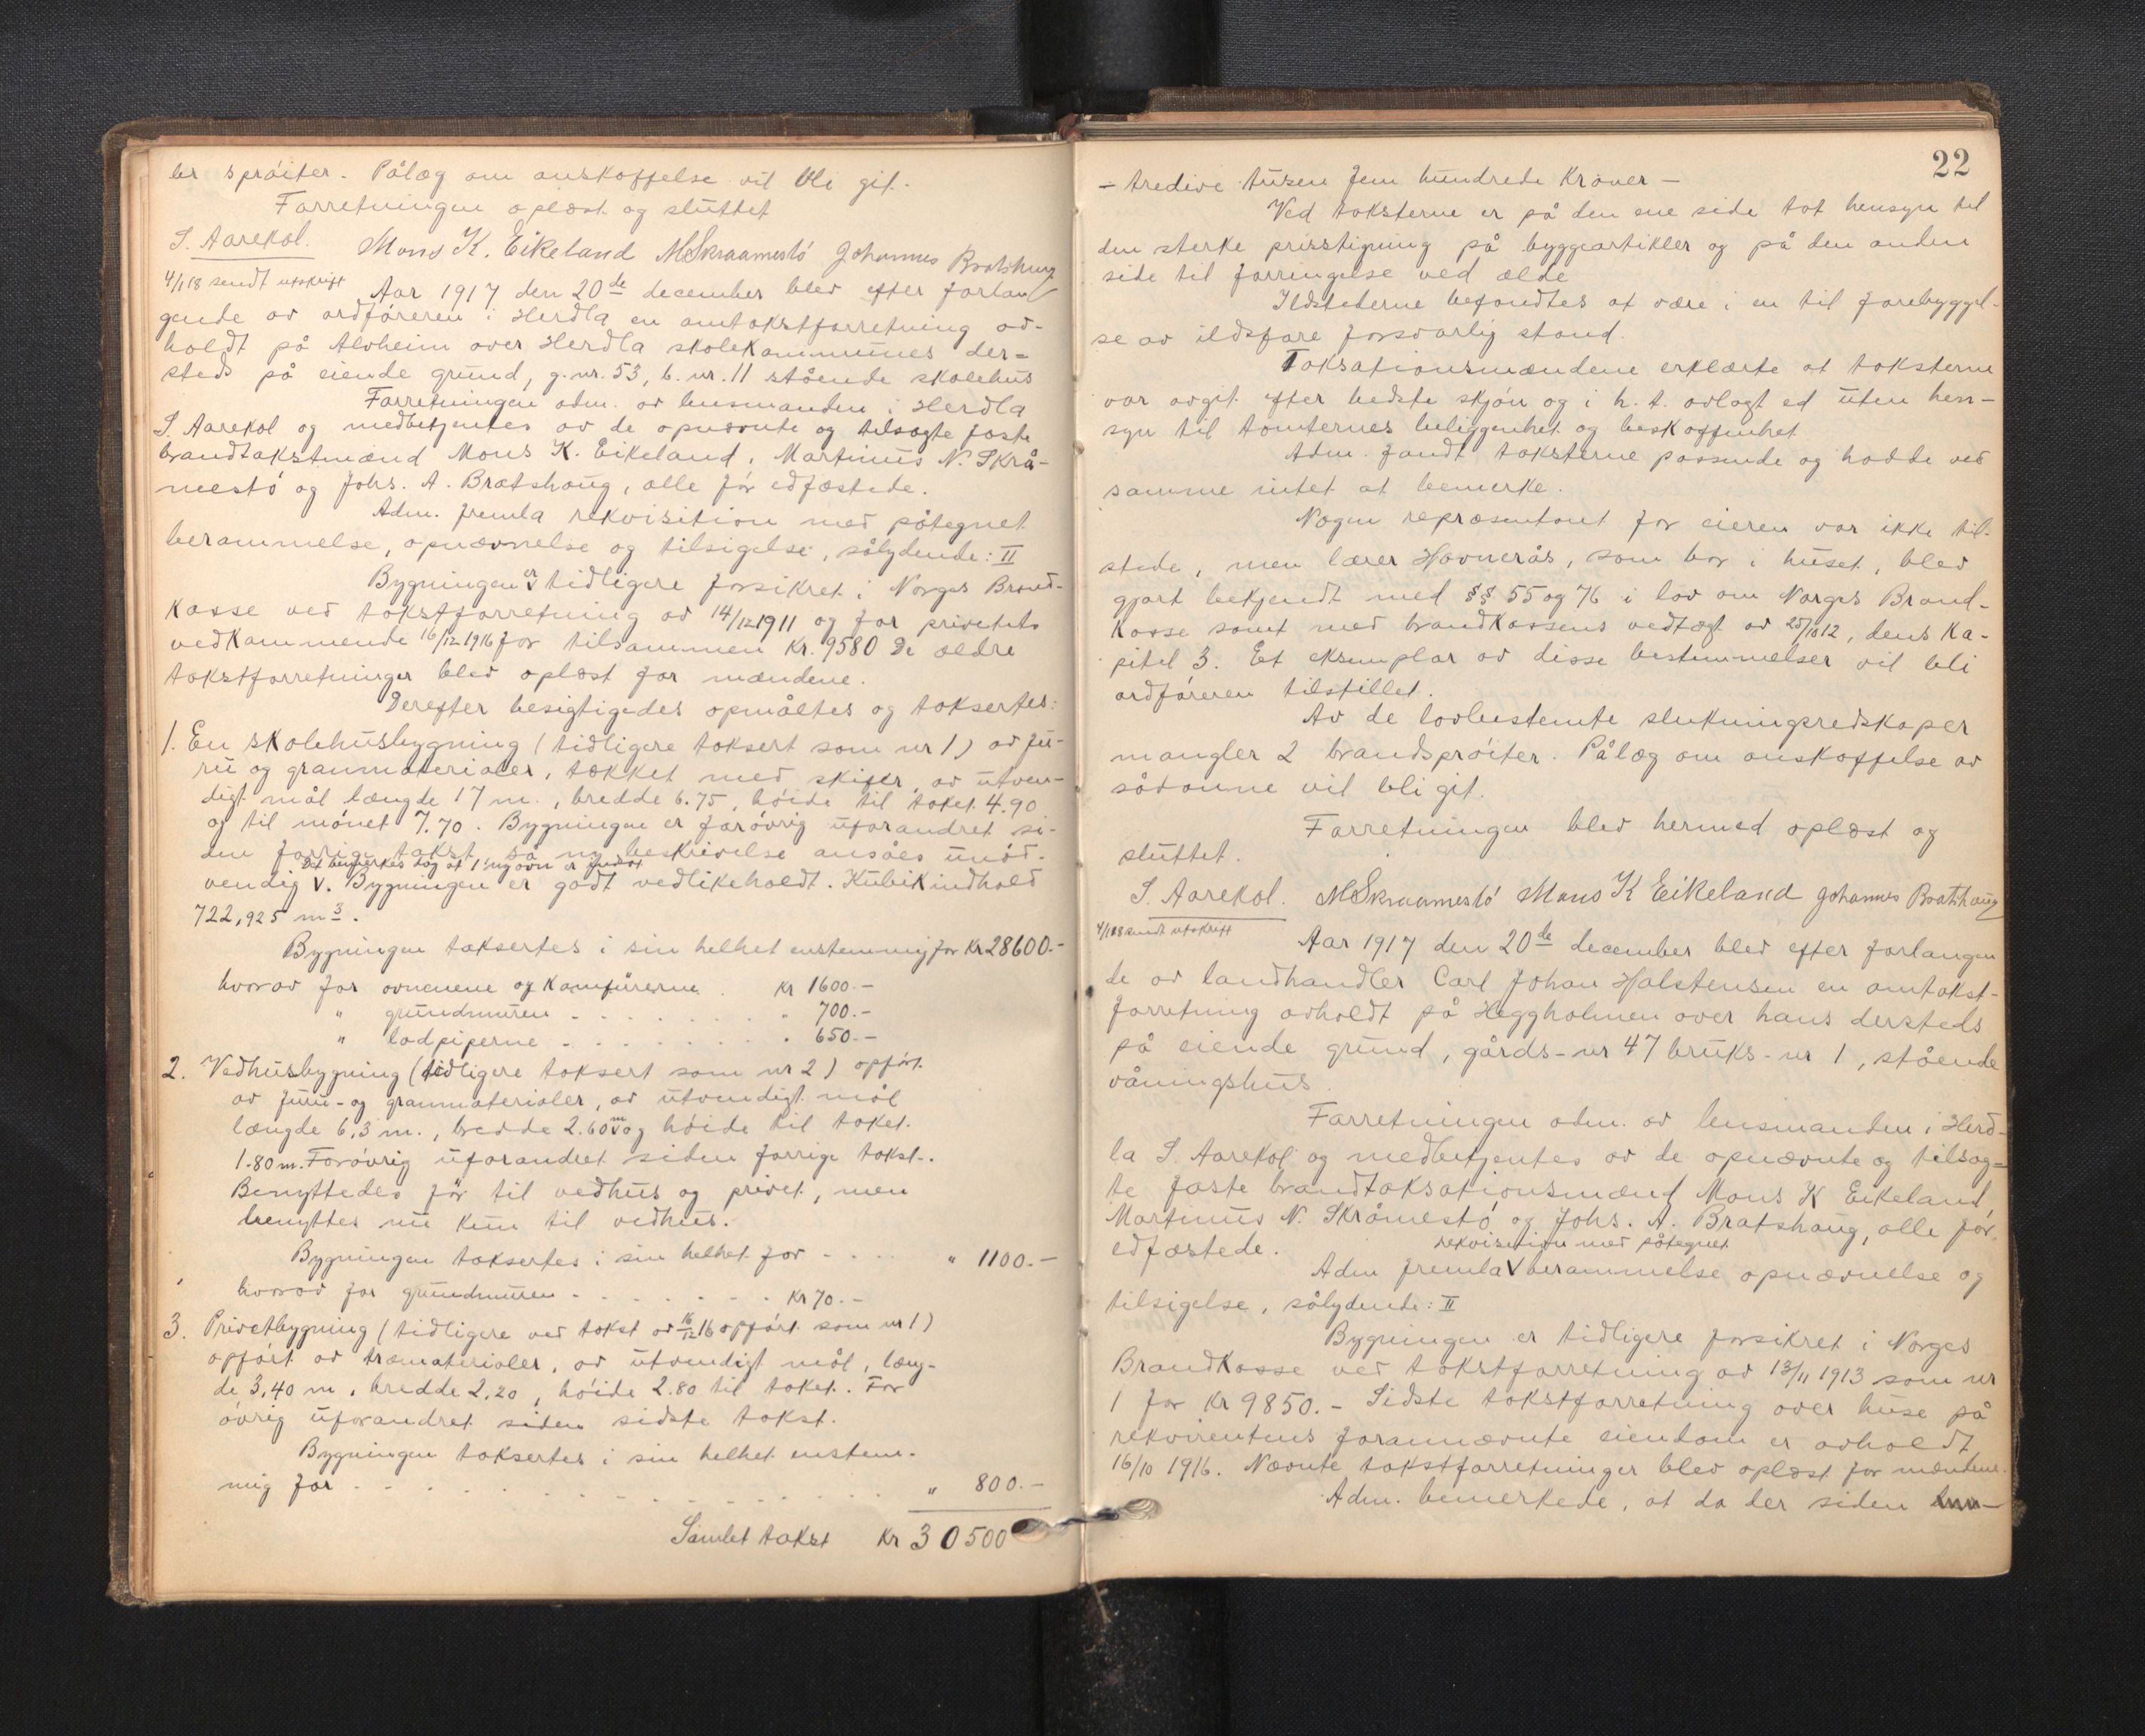 ler sprøiter. Pålæg om anskaffelse vil bli git.
Forretningen oplæst og sluttet
S. Aarekol. Mons K. Eikeland MSkraamestö Johannes Bratshaug
4/1 18 sendt utskrift
Aar 1917 den 20de december blev efter forlan
gende av ordføreren i Herdla en omtakstforretning av-
holdt på Alvheim over Herdla skolekommunes der-
steds på eiende grund, g.nr. 53, b.nr. 11 stående skolehus
Forretningen adm. av lensmanden i Herdla
S. Aarekol og medbetjentes av de opnævnte og tilsagte faste
brandtakstmænd Mons K. Eikeland, Martinus N. Skrå-
mestö og Johs. A. Bratshaug, alle før edfæstede.
Adm. fremla rekvisition med påtegnet
berammelse, opnævnelse og tilsigelse, sålydende: II
Bygningen er tidligere forsikret i Norges Brand-
kasse ved takstforretning av 14/12 1911 og for privetets
vedkommende 16/12 1916 for tilsammen kr. 9580 De ældre
takstforretninger blev oplæst for mændene.
Derefter besigtigedes opmåltes og taksertes:
1. En skolehusbygning (tidligere taksert som nr 1) av fu-
ru og granmaterialer, tækket med skifer, av utven-
digt mål længde 17 m., bredde 6.75, høide til taket 4.90
og til mønet 7.70. Bygningen er forøvrig uforandret si-
den forrige takst så ny beskrivelse ansåes unød-
Det bemerkes dog at 1 ny ovn er indsat
vendig V. Bygningen er godt vedlikeholdt. Kubikindhold
722,925 m3.
Bygningen taksertes i sin helhet enstemmig for Kr 28600.-
hvorav for ovnene og Komfürerne . kr 1600.-
" grundmuren - - - - " 700.-
" lodpiperne - - - - " 650.-
2. Vedhusbygning (tidligere taksert som nr 2) opført
av furu- og granmaterialer, av utvendigt mål
længde 6,3 m., bredde 2.60 m V og høide til taket
1.80 m. Forøvrig uforandret siden forrige takst.
Benyttedes før til vedhus og privet, men
benyttes nu kun til vedhus.
Bygningen taksertes i sin helhet for - - - " 1100.-
hvorav for grundmuren - - - - kr 70.-
3. Privetbygning (tidligere ved takst av 16/12 16 opført som nr 1)
opført av træmaterialer, av utvendigt mål, læng-
de 3,40 m, bredde 2,20, høide 2.80 til taket. For
øvrig uforandret siden sidste takst.
Bygningen taksertes i sin helhet enstem-
mig for - - - - " 800.-
Samlet takst kr 30500
22
- tredive tusen fem hundrede Kroner -
Ved taksterne er på den ene side tat hensyn til
den sterke prisstigning på byggeartikler og på den anden
side til forringelse ved ælde
Ildstederne befandtes at være i en til forebyggel-
se av ildsfare forsvarlig stand.
Taksationsmændene erklærte at taksterne
var avgit efter bedste skjøn og i h. t. avlagt ed uten hen-
syn til tomternes beliggenhet og beskaffenhet
Adm. fandt taksterne passende og hadde ved
samme intet at bemerke.
Nogen repræsentant for eieren var ikke til-
stede, men lærer Havnerås, som bor i huset, blev
gjort bekjendt med §§ 55 og 76 i lov om Norges Brand-
kasse samt med brandkassens vedtægt av 25/10 12, dens ka-
pitel 3. Et eksemplar av disse bestemmelser vil bli
ordføreren tilstillet.
Av de lovbestemte slukningsredskaper
mangler 2 brandsprøiter. Pålæg om anskaffelse av
sådanne vil bli git.
Forretningen blev hermed oplæst og
sluttet.
S. Aarekol. MSkraamestö Mons K Eikeland Johannes Bratshaug
4/1 18 sendt utskrift
Aar 1917 den 20de december blev efter forlangen
de av landhandler Carl Johan Halstensen en omtakst-
forretning avholdt på Heggholmen over hans dersteds
på eiende grund, gårds-nr 47 bruks-nr 1, stående
våningshus.
Forretningen adm. av lensmanden i Herd-
la S. Aarekol og medbetjentes av de opnævnte og tilsag-
te faste brandtaksationsmænd Mons K Eikeland,
Martinus N. Skråmestö og Johs. A. Bratshaug, alle før
edfæstede.
rekvisition med påtegnet
Adm fremla V berammelse opnævnelse og
tilsigelse, sålydende: II
Bygningen er tidligere forsikret i Norges
Brandkasse ved takstforretning av 13/11 1913 som nr
1 for kr 9850.- Sidste takstforretning over huse på
rekvirentens forannævnte eiendom er avholdt
16/10 1916. Nævnte takstforretninger blev oplæst for mændene.
Adm. bemerkede, at da der siden